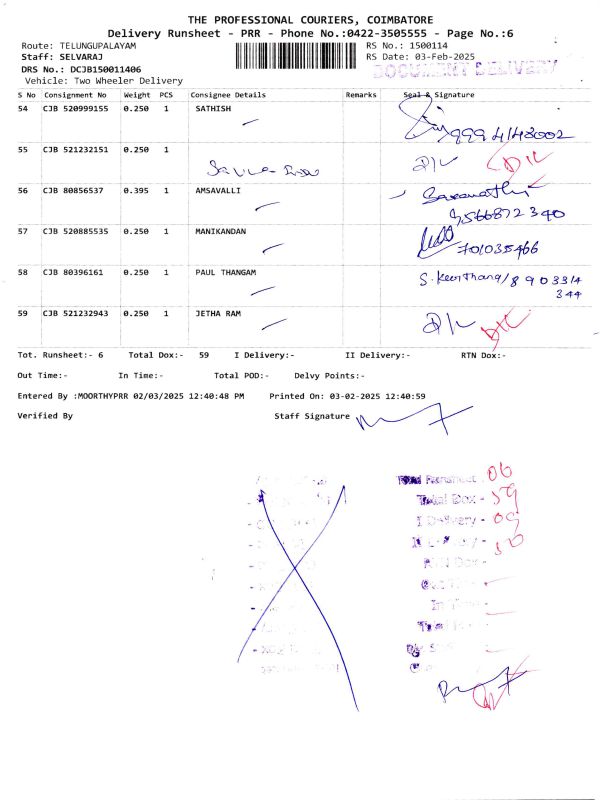 THE PROFESSIONAL COURIERS, COIMBATORE
Delivery Runsheet - PRR - Phone No.:0422-3505555 - Page No.:6
Route: TELUNGUPALAYAM RS No.: 1500114
Staff: SELVARAJ RS Date: 03-Feb-2025
DRS No.: DCJB150011406 DOCUMENT DELIVERY
Vehicle: Two Wheeler Delivery
S No Consignment No Weight PCS Consignee Details Remarks Seal & Signature
54 CJB 520999155 0.250 1 SATHISH
9994148002
55 CJB 521232151 0.250 1
D/L D/L
56 CJB 80856537 0.395 1 AMSAVALLI
9566872340
57 CJB 520885535 0.250 1 MANIKANDAN
701035466
58 CJB 80396161 0.250 1 PAUL THANGAM S. Keerthana/8903314
344
59 CJB 521232943 0.250 1 JETHA RAM D/L D/L
Tot. Runsheet:- 6 Total Dox:- 59 I Delivery:- II Delivery:- RTN Dox:-
Out Time:- In Time:- Total POD:- Delvy Points:-
Entered By :MOORTHYPRR 02/03/2025 12:40:48 PM Printed On: 03-02-2025 12:40:59
Verified By Staff Signature
Total Runsheet 06
Total Dox - 59
I Delivery - 09
II Delivery - 50
RTN Dox -
Out Time -
In Time -